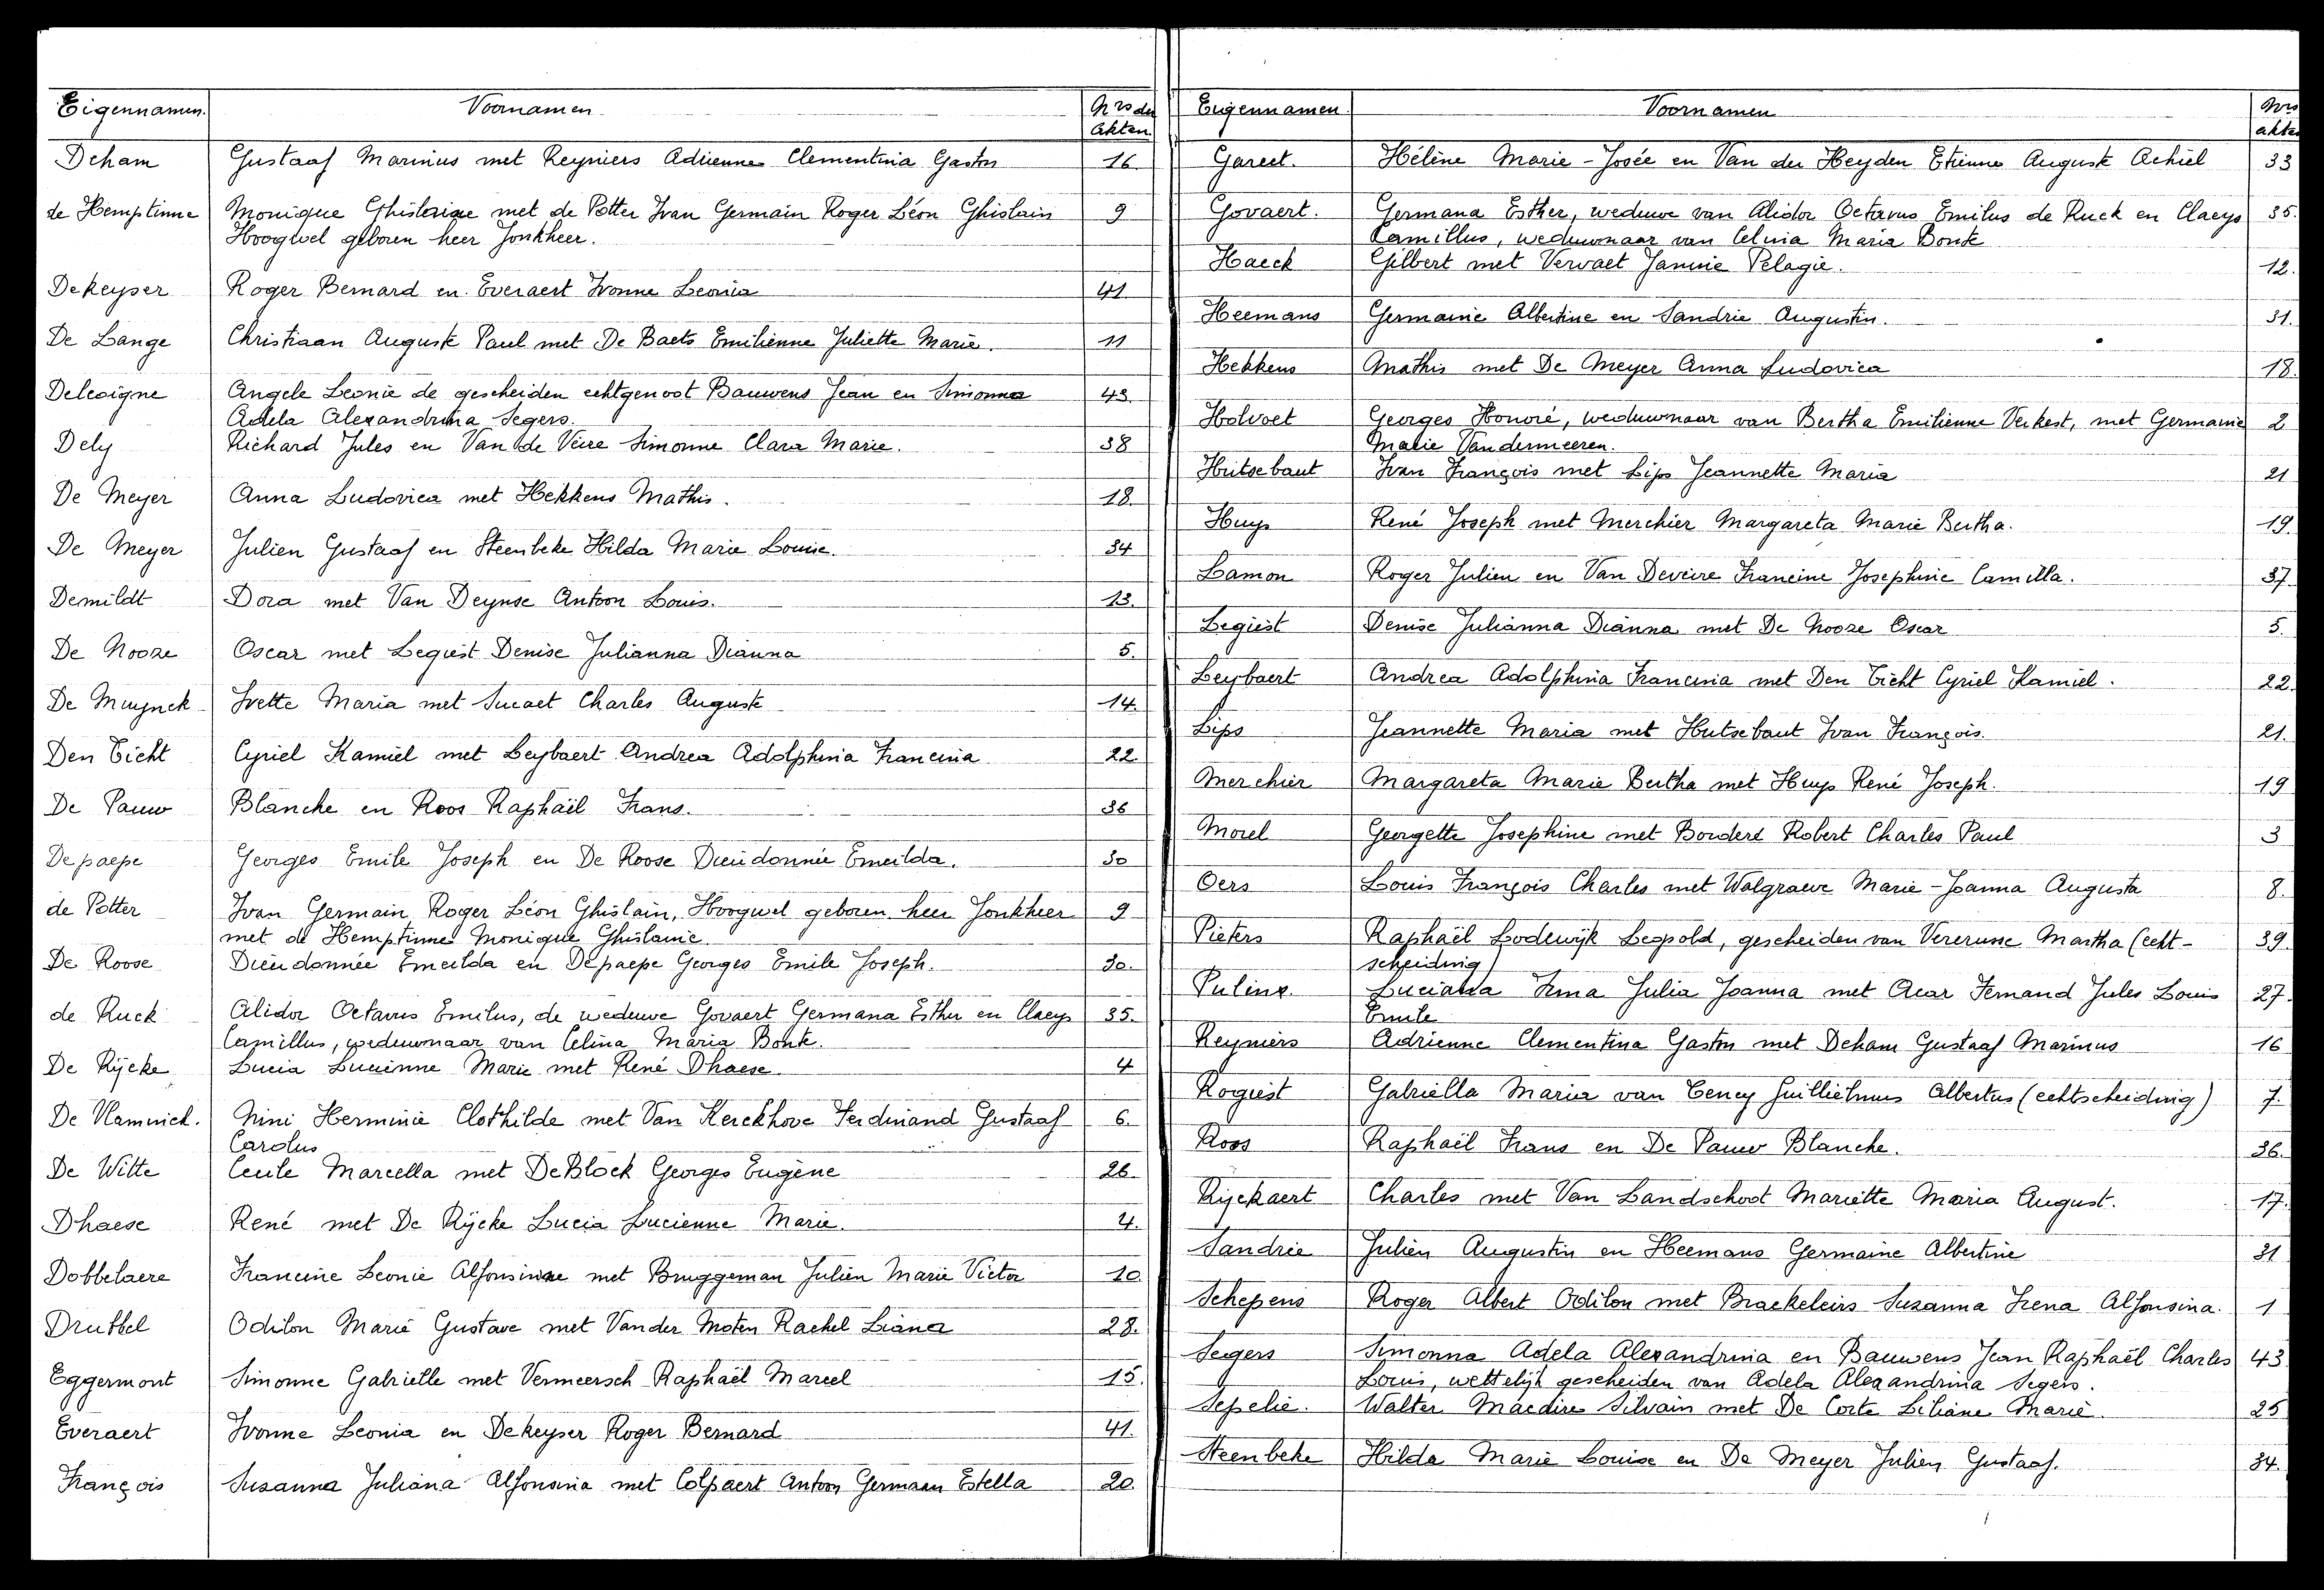 Eigennamen. Voornamen Nrs der
Akten
Deham Gustaaf Marinus met Reyniers Adrienne Clementina Gaston 16
de Hemptinne Monique Ghislaine met de Potter Ivan Germain Roger Léon Ghislain 9
Hoogwel geboren heer Jonkheer.
Dekeyser Roger Bernard en Everaert Ivonne Leonia 41
De Lange Christiaan Auguste Paul met De Baets Emilienne Juliette Marie. 11
Deleoigne Angele Leonie de gescheiden echtgenoot Bauwens Jean en Simonna 43.
Adela Alexandrina Segers.
Dely Richard Jules en Van de Veire Simonne Clara Marie. 38
De Meyer Anna Ludovica met Hekkens Mathis. 18.
De Meyer Julien Gustaaf en Steenbeke Hilda Marie Louise. 34
Demildt Dora met Van Deynse Antoon Louis. 13.
De Nooze Oscar met Legiest Denise Julianna Dianna 5.
De Muynck Ivette Maria met Sucaet Charles Auguste 14.
Den Ticht Cyriel Kamiel met Leybaert Andrea Adolphina Francina 22
De Pauw Blanche en Roos Raphaël Frans. 36
Depaepe Georges Emile Joseph en De Roose Dieudonnée Emeilda. 30
de Potter Ivan Germain Roger Léon Ghislain, Hoogwel geboren heer Jonkheer 9
met de Hemptinne Monique Ghislaine.
De Roose Dieudonnée Emeilda en Depaepe Georges Emile Joseph. 30.
de Ruck Alidor Octavus Emilus, de weduwe Govaert Germana Esther en Claeys 35.
Camillus, weduwnaar van Celina Maria Bonte.
De Rijcke Lucia Lucienne Marie met René Dhaese 4
De Vlaminck. Nini Herminie Clothilde met Van Kerckhove Ferdinand Gustaaf 6.
Carolus
De Witte Cecile Marcella met De Block Georges Eugène 26.
Dhaese René met De Rijcke Lucia Lucienne Marie. 4.
Dobbelaere Francine Leonie Alfonsine met Bruggeman Julien Marie Victor 10
Drubbel Odilon Marie Gustave met Van der Moten Rachel Liana 28.
Eggermont Simonne Gabrielle met Vermeersch Raphaël Marcel 15.
Everaert Ivonne Leonia en Dekeyser Roger Bernard 41.
François Susanna Juliana Alfonsina met Colpaert Antoon Germaan Estella 20.
Eigennamen. Voornamen Nrs
akten
Gareet. Hélène Marie-Josée en Van der Heyden Etienne Auguste Achiel 33
Govaert. Germana Esther, weduwe van Alidor Octavus Emilus de Ruck en Claeys 35.
Camillus, weduwnaar van Celina Maria Bonte
Haeck Gilbert met Vervaet Jannie Pelagie. 12.
Heemans Germaine Albertine en Sandrie Augustin. 31.
Hekkens Mathis met De Meyer Anna Ludovica 18.
Holvoet Georges Honoré, weduwnaar van Bertha Emilienne Verkest, met Germaine 2
Marie Vandermeeren.
Hutsebaut Ivan François met Lips Jeannette Maria 21
Huys René Joseph met Merchier Margareta Marie Bertha. 19.
Lamon Roger Julien en Van Deveire Francine Josephine Camilla. 37.
Legiest Denise Julianna Dianna met De Nooze Oscar 5.
Leybaert Andrea Adolphina Francina met Den Ticht Cyriel Kamiel. 22.
Lips Jeannette Maria met Hutsebaut Ivan François. 21.
Merchier Margareta Marie Bertha met Huys René Joseph. 19
Morel Georgette Josephine met Borderé Robert Charles Paul 3
Oers Louis François Charles met Walgraeve Marie-Joanna Augusta 8.
Pieters Raphaël Lodewijk Leopold, gescheiden van Vererusse Martha (echt- 39.
scheiding)
Pulinx. Luciana Irma Julia Joanna met Acar Fernand Jules Louis 27.
Emile
Reyniers Adrienne Clementina Gaston met Deham Gustaaf Marinus 16
Rogiest Gabriella Maria van Teney Guillielmus Albertus (echtscheiding) 7.
Roos Raphaël Frans en De Pauw Blanche. 36.
Rijckaert Charles met Van Landschoot Mariette Maria August. 17.
Sandrie Julien Augustin en Heemans Germaine Albertine 31
Schepens Roger Albert Odilon met Braekeleirs Susanna Irena Alfonsina. 1
Segers Simonna Adela Alexandrina en Bauwens Jean Raphaël Charles 43
Louis, wettelijk gescheiden van Adela Alexandrina Segers.
Sepelie. Walter Maedire Silvain met De Corte Liliane Marie. 25
Steenbeke Hilda Marie Louise en De Meyer Julien Gustaaf. 34.